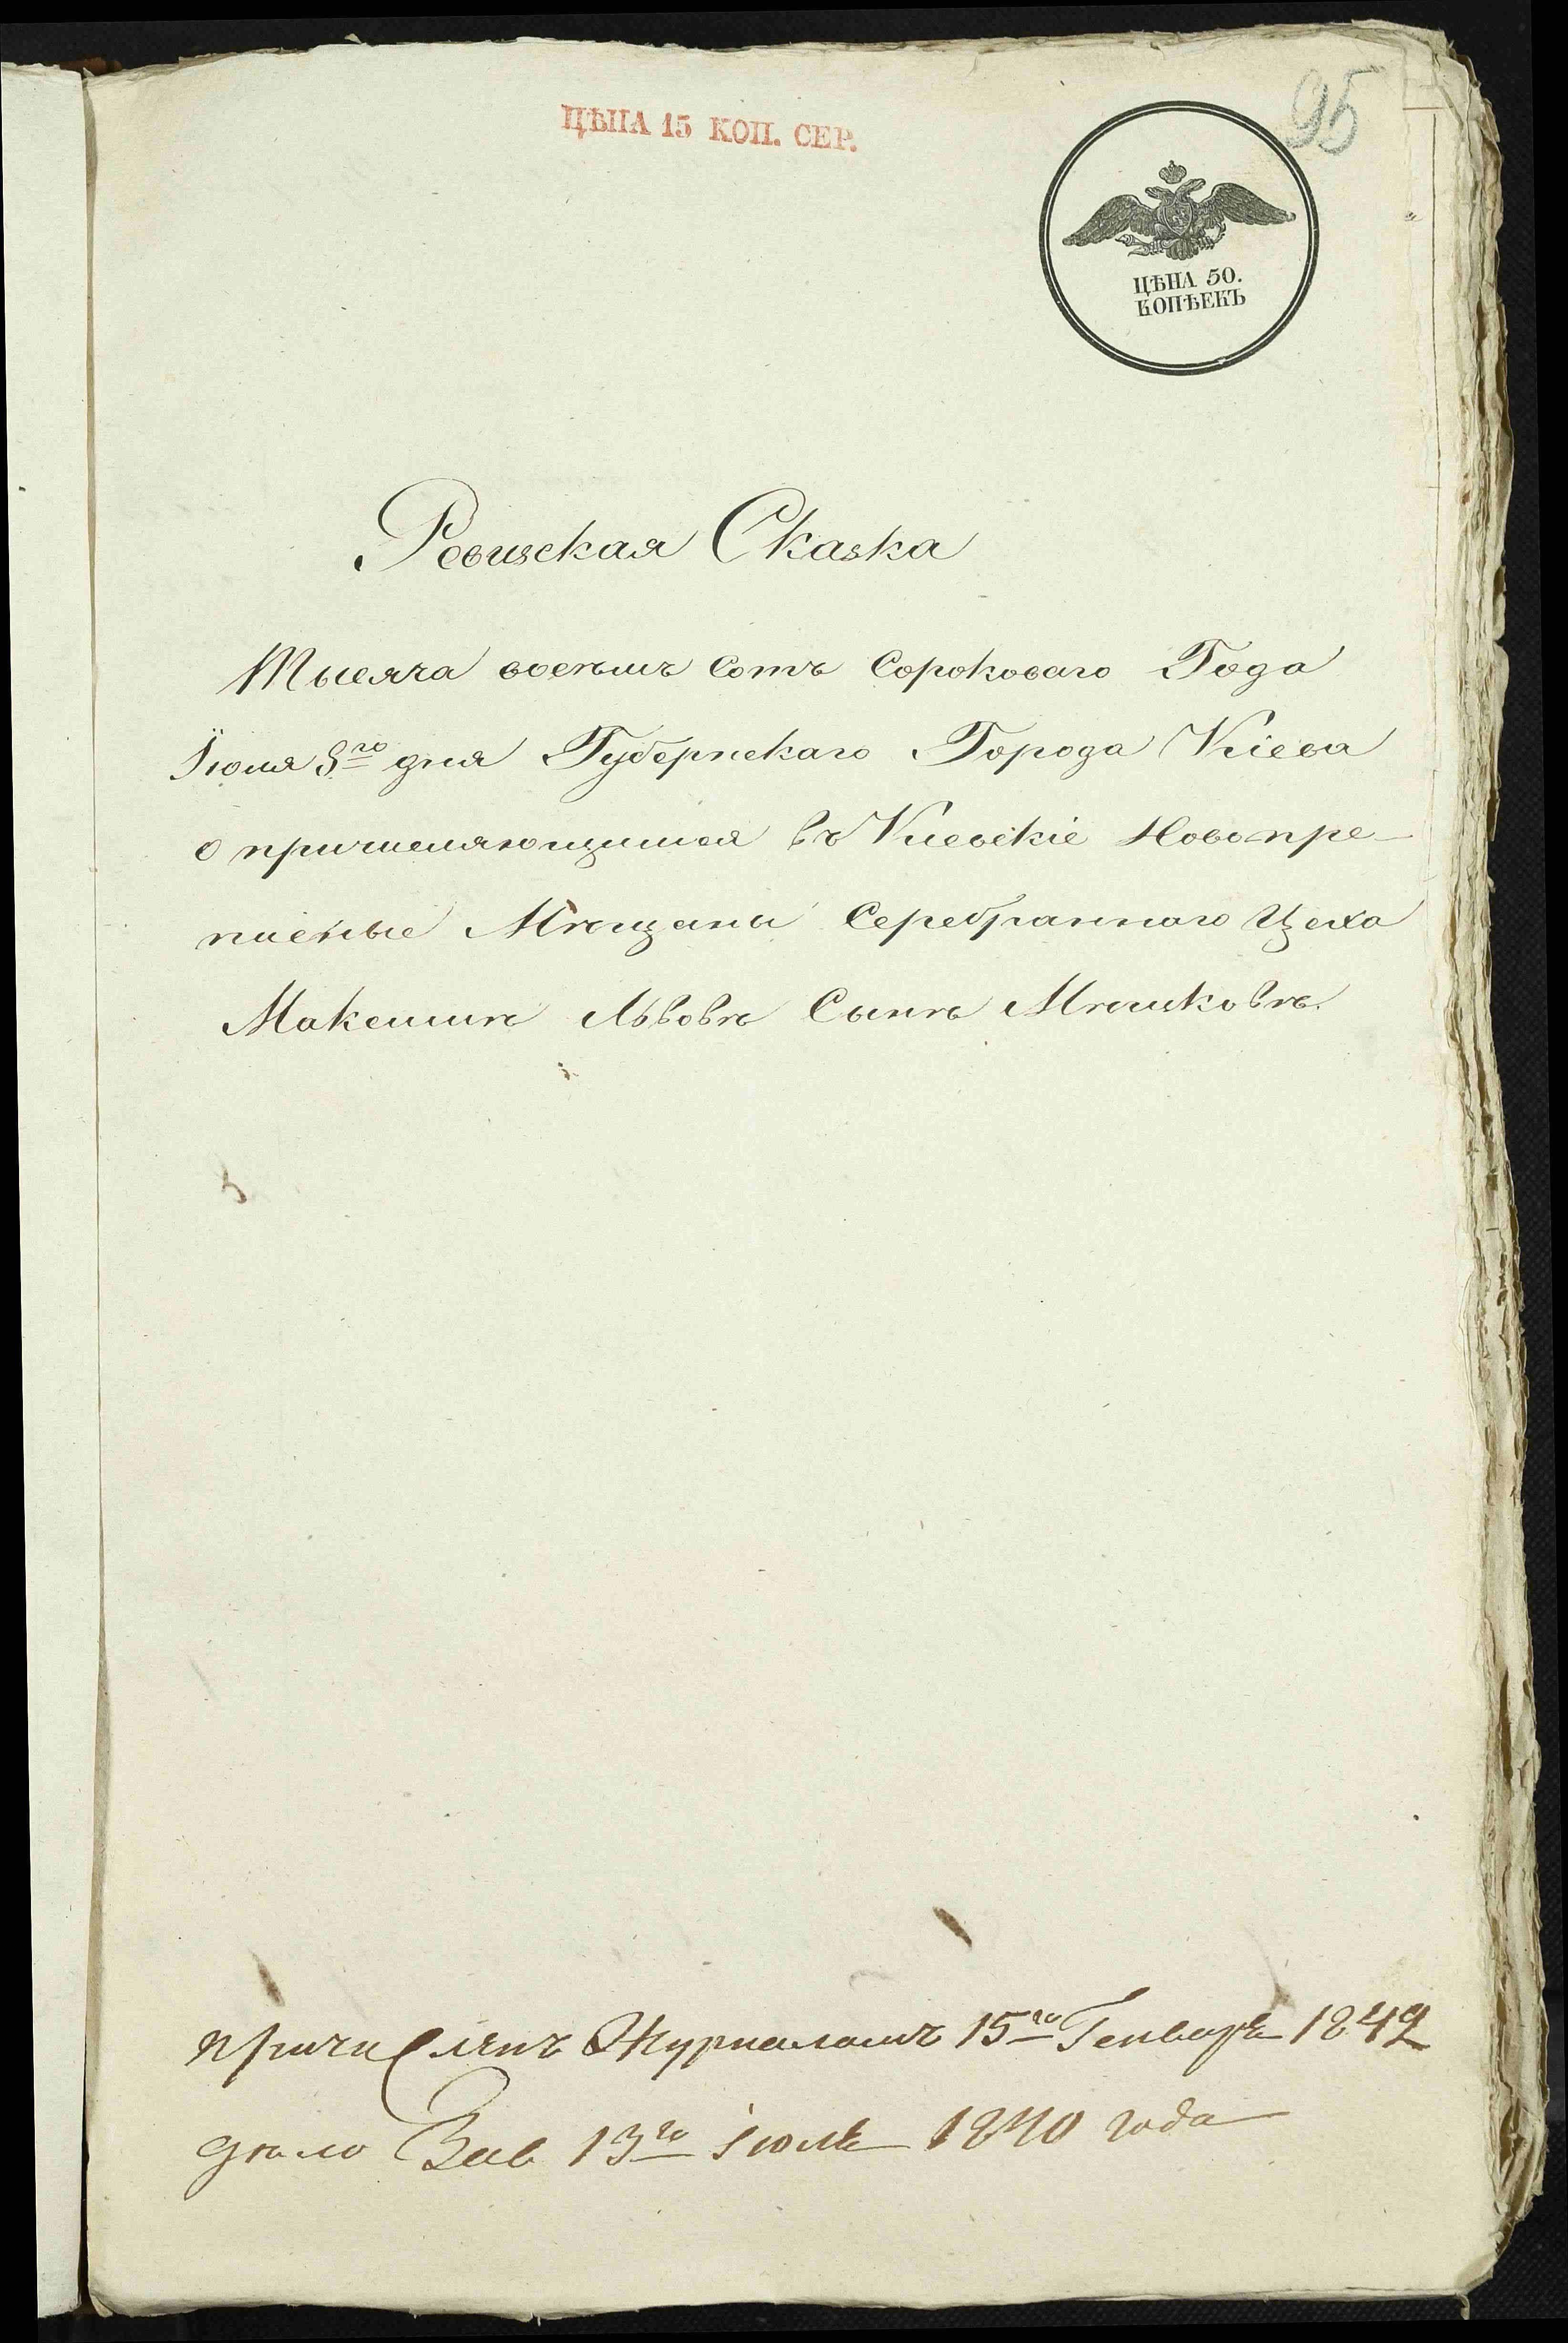 95
ЦѢНА 15 КОП. СЕР.
ЦѢНА 50.
КОПѢЕКЪ
Ревизская Сказка
Тысяча восемъ Сотъ Сороковаго Года
Іюля 8го дня Губернскаго Города Кіева
о причисляющимся въ Киевскіе Новопре-
писные Мѣщаны Серебранного Цеха
Максимѣ Львовѣ Сынѣ Мѣшковѣ.
причисленъ Журналомъ 15го Генваря 1842
дѣло Зав 13го іюля 1840 года